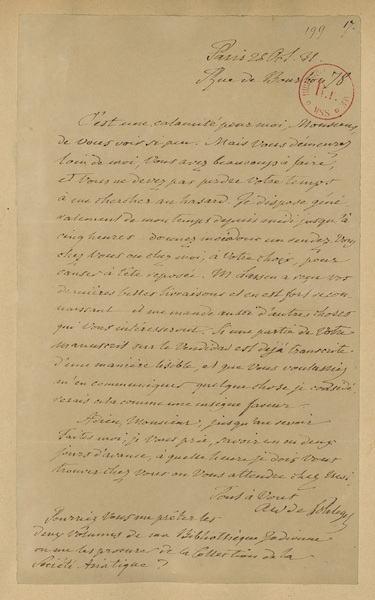 199 17.
Paris 28 Oct. 31.
Rue de Bourbon 78
C'est une calamité pour moi, Monsieur,
de vous voir si peu. Mais vous demeurez
loin de moi, vous avez beaucoup à faire,
et vous ne devez pas perdre votre temps
à me chercher au hasard. Je dispose géné-
ralement de mon temps depuis midi jusqu'à
cinq heures donnez moi donc un rendez-vous
chez vous ou chez moi, à votre choix, pour
causer à tête reposée. M. Lassen a reçu vos
dernières belles livraisons et en est fort recon-
naissant il me mande aussi d'autres choses
qui vous intéresseront. Si une partie de votre
manuscrit sur le Vendidad est déjà transcrite
d'une manière lisible, et que vous voulussiez
m'en communiquer quelque chose, je considé-
rerais cela comme une insigne faveur.
Adieu, Monsieur, jusqu'au revoir
faites moi, je vous prie, savoir un ou deux
jours d'avance, à quelle heure je dois vous
trouver chez vous ou vous attendre chez moi.
Tout à Vous
AW de Schlegel
Pourriez vous me prêter les
deux volumes de ma Bibliothèque Indienne
ou me les procurer de la Collection de la
Société Asiatique?